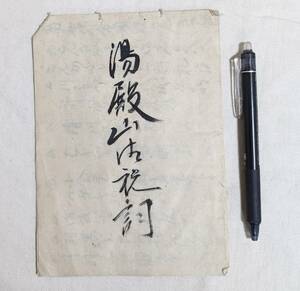 湯殿山御祝詞